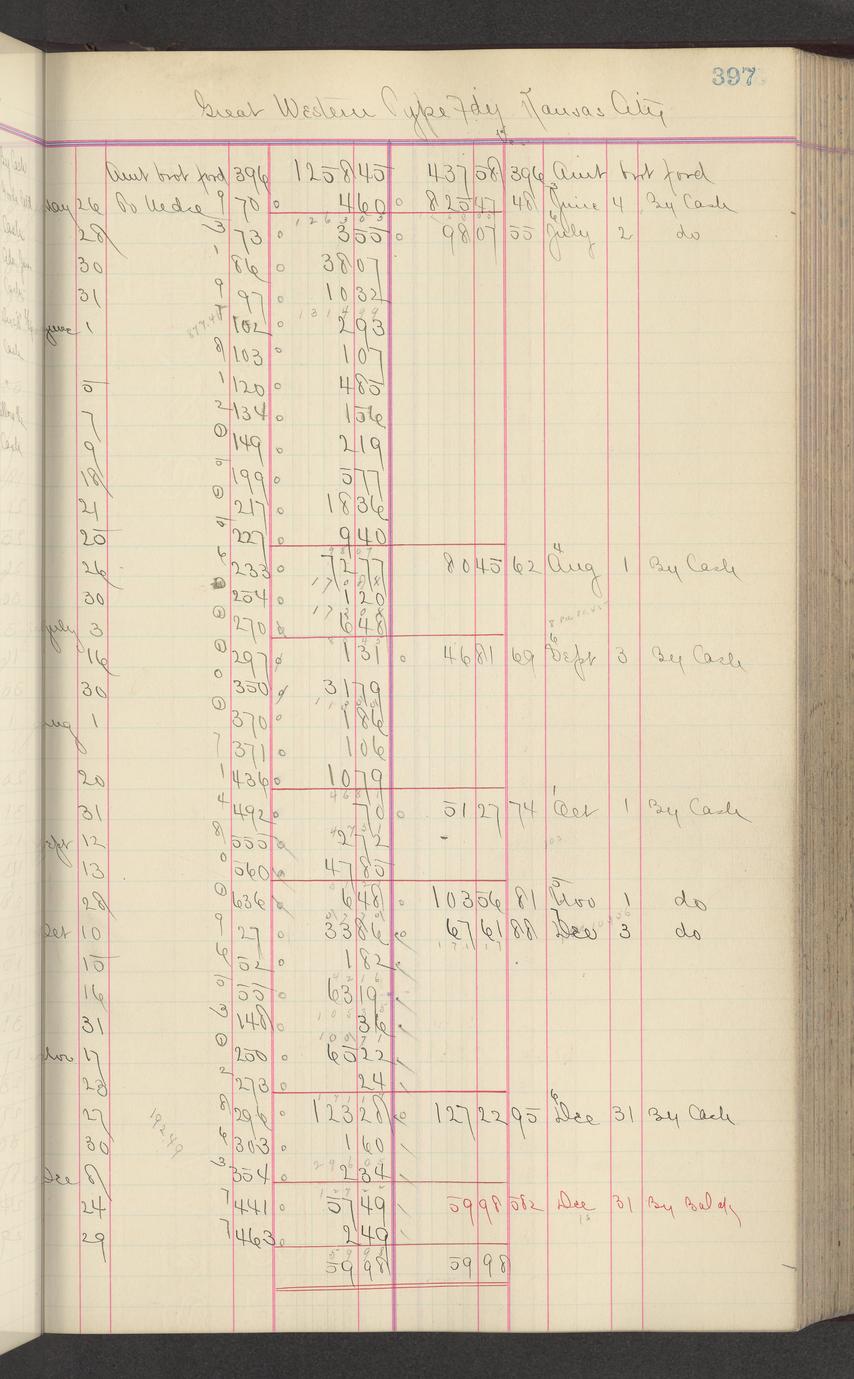 397
Great Western Type Fdy Kansas City
Amt brot ford 396 1258 45 437 58 396 Amt brot ford
May 26 To Mdse 9 70 4 60 825 47 48 June 4 By Cash
28 3 73 3 55 98 07 55 July 2 do
30 1 86 38 07
31 9 97 10 32
June 1 102 2 93
8 103 1 07
5 1 120 4 85
7 2 134 1 56
9 149 2 19
18 199 5 77
21 217 18 36
25 227 9 40
26 6 233 72 77 80 45 62 Aug 1 By Cash
30 254 1 20
July 3 270 6 48
16 297 1 31 46 81 69 Sept 3 By Cash
30 0 350 31 79
Aug 1 370 1 86
7 371 1 06
20 1 436 10 79
31 4 492 70 51 27 74 Oct 1 By Cash
Sept 12 8 555 2 72
13 0 560 47 85
28 636 6 48 103 56 81 Nov 1 do
Oct 10 9 27 33 86 67 61 88 Dec 3 do
15 6 52 1 82
16 55 63 19
31 3 148 36
Nov 17 250 60 22
23 2 273 24
27 8 296 123 28 127 22 95 Dec 31 By Cash
30 6 303 1 60
Dec 8 3 354 2 34
24 7 441 57 49 59 98 582 Dec 31 By Bal
29 7 463 2 49
59 98 59 98